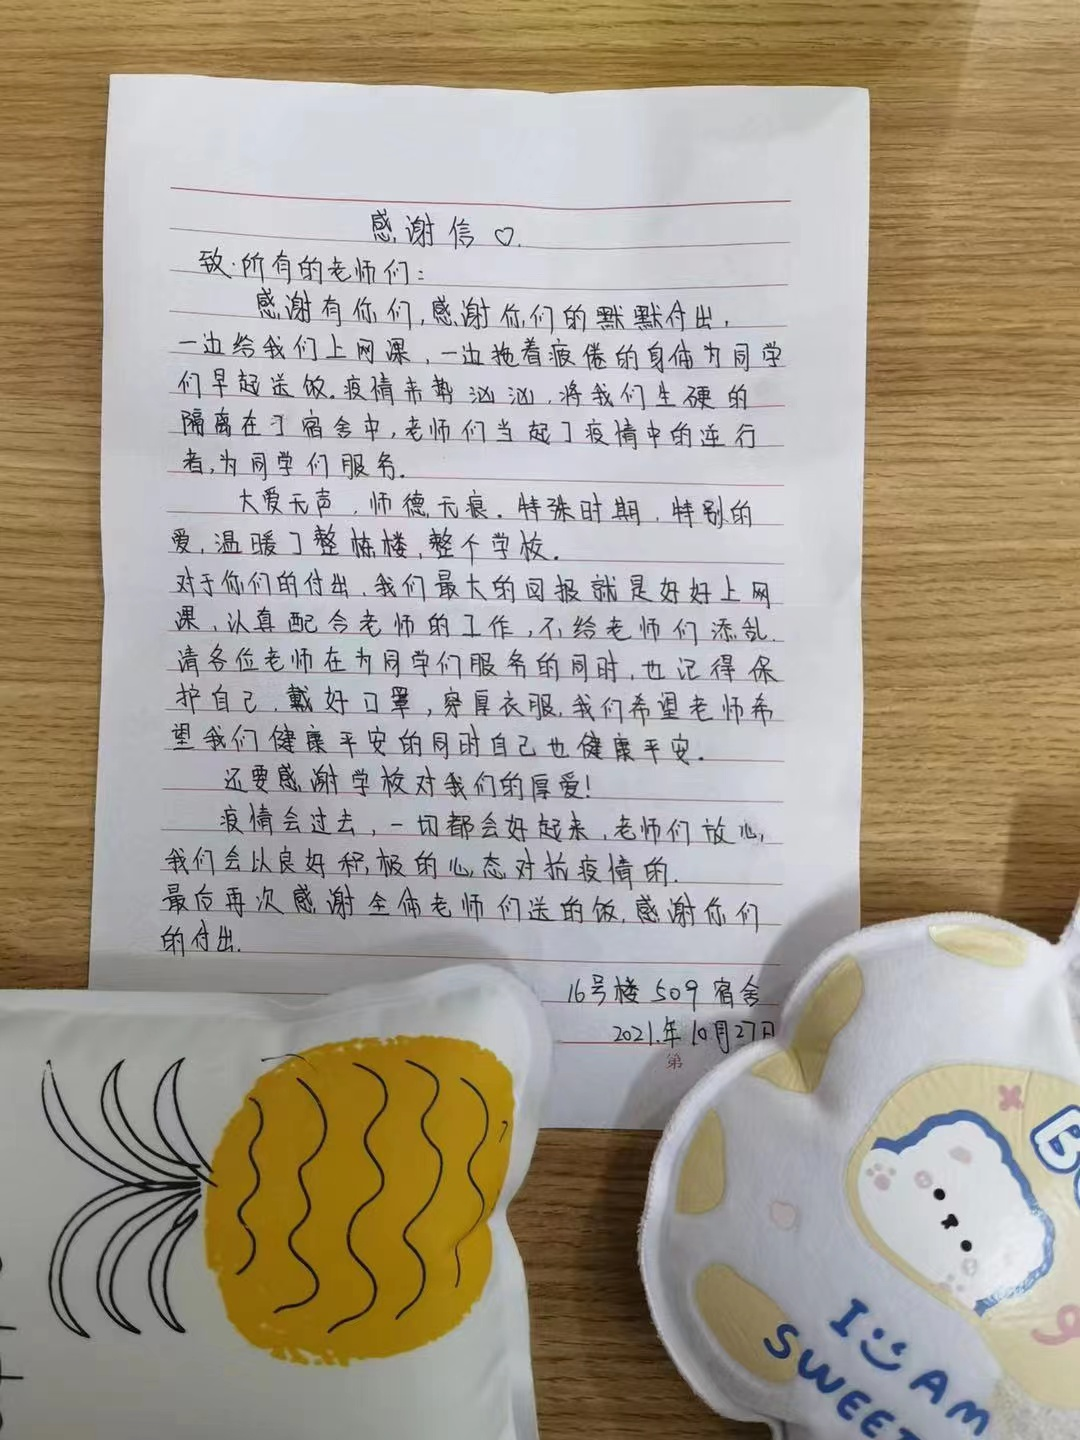 感谢信♡.
致·所有的老师们：
感谢有你们,感谢你们的默默付出,
一边给我们上网课,一边拖着疲倦的身体为同学
们早起送饭.疫情来势汹汹,将我们生硬的
隔离在了宿舍中,老师们当起了疫情中的逆行
者,为同学们服务.
大爱无声,师德无痕.特殊时期,特别的
爱,温暖了整栋楼,整个学校.
对于你们的付出,我们最大的回报就是好好上网
课,认真配合老师的工作,不给老师们添乱.
请各位老师在为同学们服务的同时,也记得保
护自己,戴好口罩,穿厚衣服.我们希望老师希
望我们健康平安的同时自己也健康平安.
还要感谢学校对我们的厚爱!
疫情会过去,一切都会好起来,老师们放心,
我们会以良好积极的心态对抗疫情的.
最后再次感谢全体老师们送的饭,感谢你们
的付出.
16号楼509宿舍
2021.年10月27日
第
I AM
SWEET